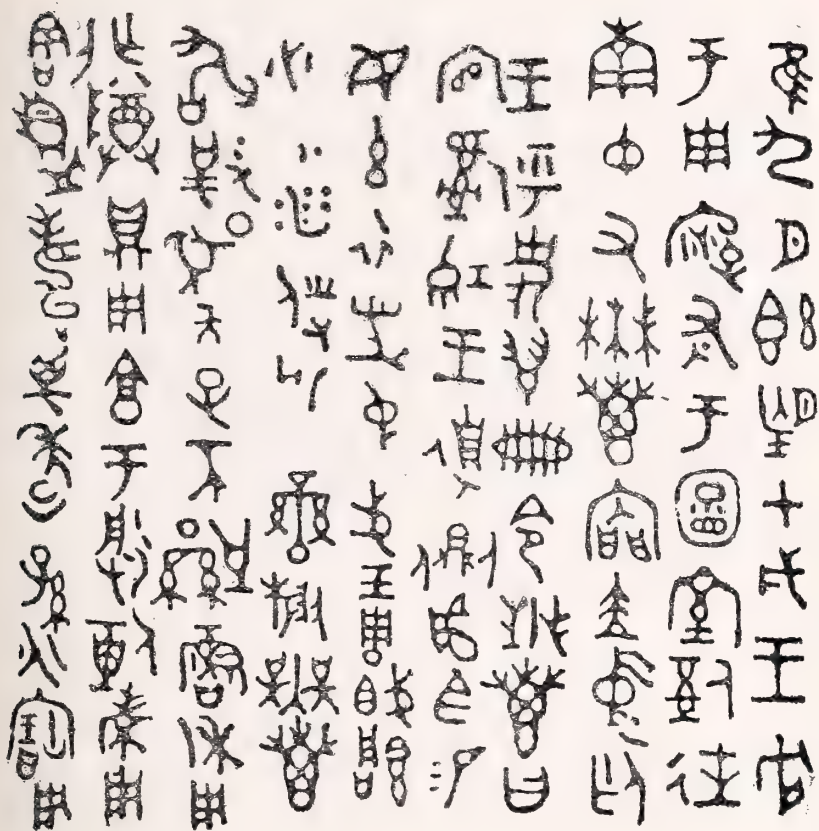 隹九月既望甲戌王各
于周廟于圖室𤔲徒
南中右無叀內門立中廷
王乎史翏冊令無叀曰
官𤔲王側虎臣易女
玄衣黹屯戈琱
攸勒旂無叀
敢對揚天子不顯魯休用
乍尊鼎用享于朕剌考用
割眉壽萬年子孫永寶用